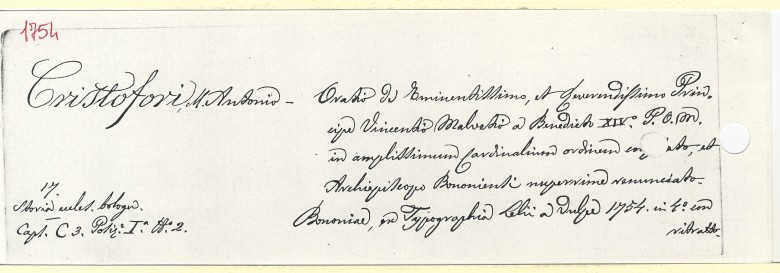 1754
Cristofori, M. Antonio – Oratio de Eminentissimo, et Reverendissimo Prin-
cipe Vincentio Malvetio a Benedicto XIV.º P. O. M.
in amplissimum Cardinalium ordinem et
Archiepiscopo Bononiensi nuperrime renunciato.
Bononiae, ex Typographia Lelii a Vulpe 1754. in 4.º con
ritratto.
17.
Storia eccles. bologn.
Capt. C 3. Posiz.e I.a N.º 2.